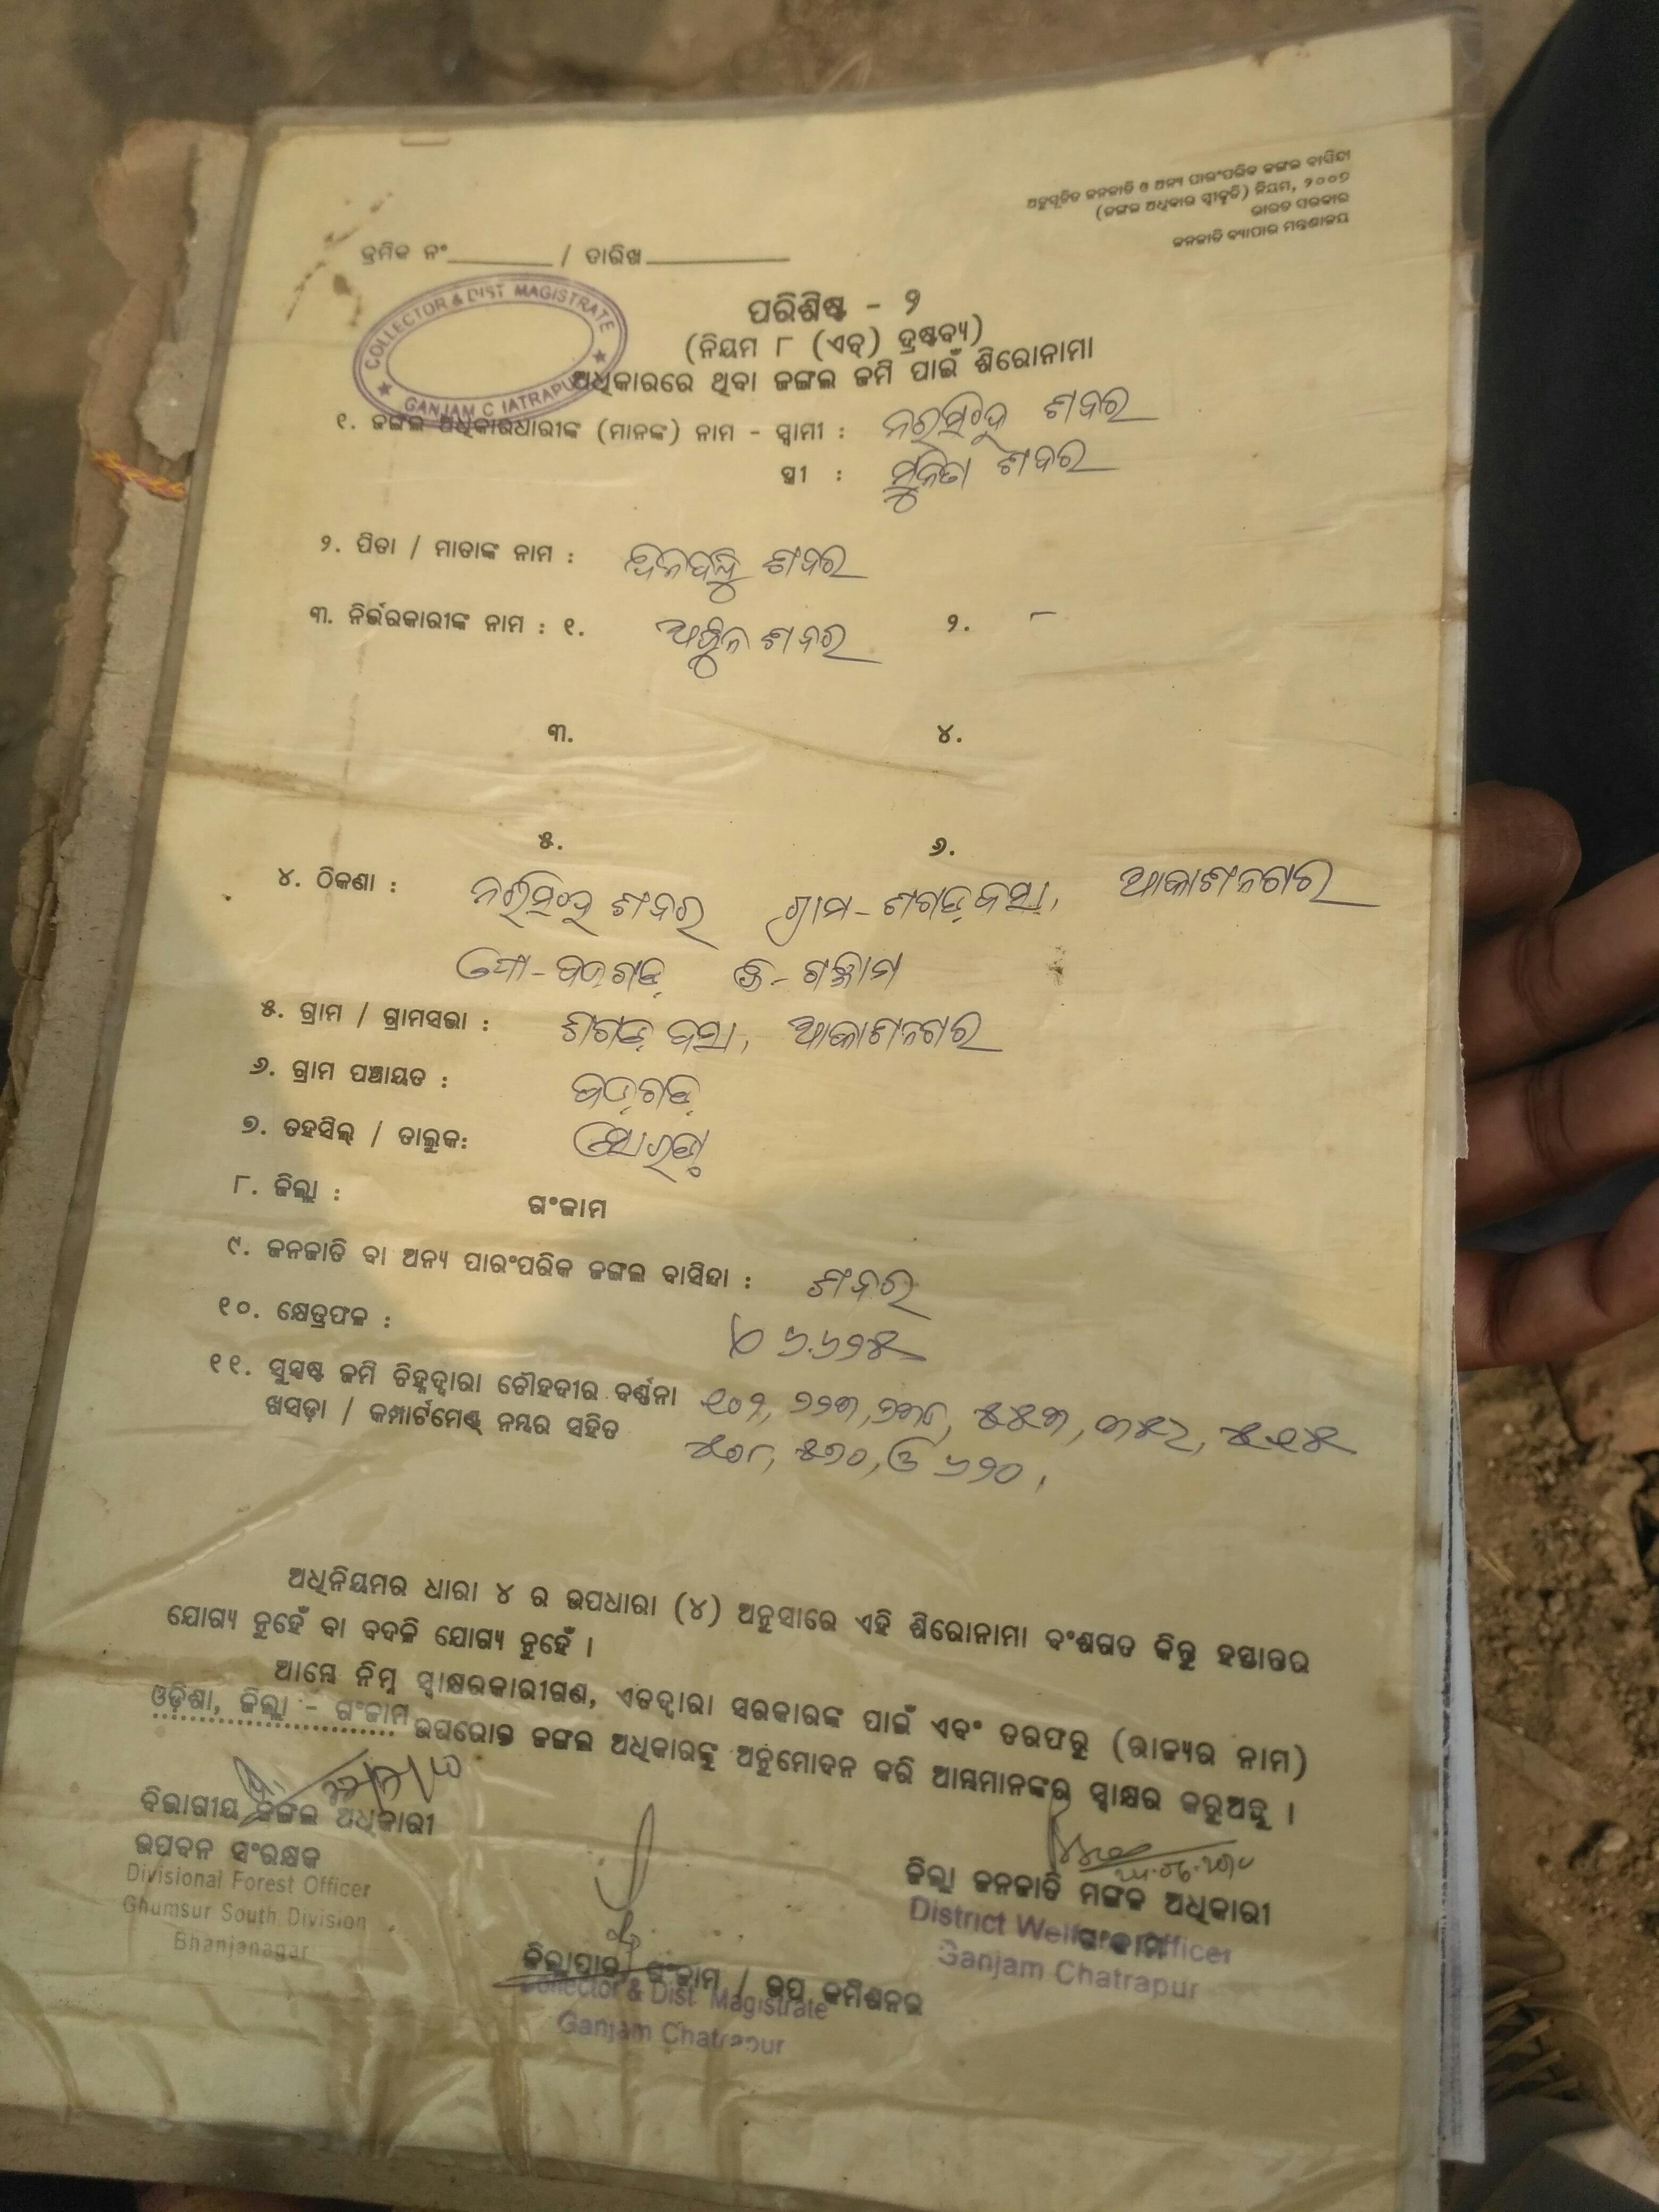 ଅନୁସୂଚିତ ଜନଜାତି ଓ ଅନ୍ୟ ପାରଂପରିକ ଜଙ୍ଗଲ ବାସିନ୍ଦା
(ଜଙ୍ଗଲ ଅଧିକାର ସ୍ୱୀକୃତି) ନିୟମ, ୨୦୦୭
ଭାରତ ସରକାର
ଜନଜାତି ବ୍ୟାପାର ମନ୍ତ୍ରଣାଳୟ
କ୍ରମିକ ନଂ / ତାରିଖ
COLLECTOR & DIST. MAGISTRATE
GANJAM C IATRAPUR
ପରିଶିଷ୍ଟ - ୨
(ନିୟମ ୮ (ଏଚ୍) ଦ୍ରଷ୍ଟବ୍ୟ)
ଅଧିକାରରେ ଥିବା ଜଙ୍ଗଲ ଜମି ପାଇଁ ଶିରୋନାମା
୧. ଜଙ୍ଗଲ ଅଧିକାରଧାରୀଙ୍କ (ମାନଙ୍କ) ନାମ - ସ୍ୱାମୀ : ନରସିଂହ ଶବର
ସ୍ତ୍ରୀ : ଶବର
୨. ପିତା / ମାତାଙ୍କ ନାମ : ଶବର
୩. ନିର୍ଭରକାରୀଙ୍କ ନାମ : ୧. ଶବର ୨. -
୩. ୪.
୫. ୬.
୪. ଠିକଣା : ନରସିଂହ ଶବର ଗ୍ରାମ - ଶଗଡ଼ବସା, ଆକାଶନଗର
ପୋ - ବଡ଼ଗଡ଼ ଜି - ଗଞ୍ଜାମ
୫. ଗ୍ରାମ / ଗ୍ରାମସଭା : ଶଗଡ଼ବସା, ଆକାଶନଗର
୬. ଗ୍ରାମ ପଞ୍ଚାୟତ : ବଡ଼ଗଡ଼
୭. ତହସିଲ୍ / ତାଲୁକ: ସୋରଡ଼ା
୮. ଜିଲ୍ଲା : ଗଂଜାମ
୯. ଜନଜାତି ବା ଅନ୍ୟ ପାରଂପରିକ ଜଙ୍ଗଲ ବାସିନ୍ଦା : ଶବର
୧୦. କ୍ଷେତ୍ରଫଳ : ୬.୬୨୫
୧୧. ସୁସ୍ପଷ୍ଟ ଜମି ଚିହ୍ନଦ୍ୱାରା ଚୌହଦୀର ବର୍ଣ୍ଣନା ୧୦୨, ୭୨୩, ୫୪୩,
ଖସଡ଼ା / କମ୍ପାର୍ଟମେଣ୍ଟ୍ ନମ୍ବର ସହିତ ୫୭୦, ଓ ୬୨୦ ।
ଅଧିନିୟମର ଧାରା ୪ ର ଉପଧାରା (୪) ଅନୁସାରେ ଏହି ଶିରୋନାମା ବଂଶଗତ କିନ୍ତୁ ହସ୍ତାନ୍ତର
ଯୋଗ୍ୟ ନୁହେଁ ବା ବଦଳି ଯୋଗ୍ୟ ନୁହେଁ ।
ଆମ୍ଭେ ନିମ୍ନ ସ୍ୱାକ୍ଷରକାରୀଗଣ, ଏତଦ୍ୱାରା ସରକାରଙ୍କ ପାଇଁ ଏବଂ ତରଫରୁ (ରାଜ୍ୟର ନାମ)
ଓଡ଼ିଶା, ଜିଲ୍ଲା - ଗଂଜାମ ଉପରୋକ୍ତ ଜଙ୍ଗଲ ଅଧିକାରଙ୍କୁ ଅନୁମୋଦନ କରି ଆମ୍ଭମାନଙ୍କର ସ୍ୱାକ୍ଷର କରୁଅଛୁ ।
ବିଭାଗୀୟ ଜଙ୍ଗଲ ଅଧିକାରୀ
ଉପବନ ସଂରକ୍ଷକ
Divisional Forest Officer
Ghumsur South Division
Bhanjanagar
ଜିଲ୍ଲାପାଳ, ଗଂଜାମ / ଉପ କମିଶନର
Collector & Dist. Magistrate
Ganjam Chatrapur
ଜିଲ୍ଲା ଜନଜାତି ମଙ୍ଗଳ ଅଧିକାରୀ
ଗଂଜାମ
District Welfare Officer
Ganjam Chatrapur